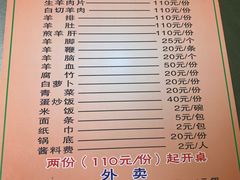 生羊肉片 110元/份
白切羊肉 110元/份
羊排 110元/份
羊肚 110元/份
煎羊肝 110元/份
羊脚 25元/个
羊鞭 20元/条
羊脑 20元/个
羊血 50元/份
腐竹 20元/份
白萝卜 20元/份
青菜 20元/份
蛋炒饭 40元/份
米饭 2元/碗
面条 5元/包
纸巾 2元/包
锅底 20元/份
酱料费 2元/人
两份（110元/份）起开桌
外卖